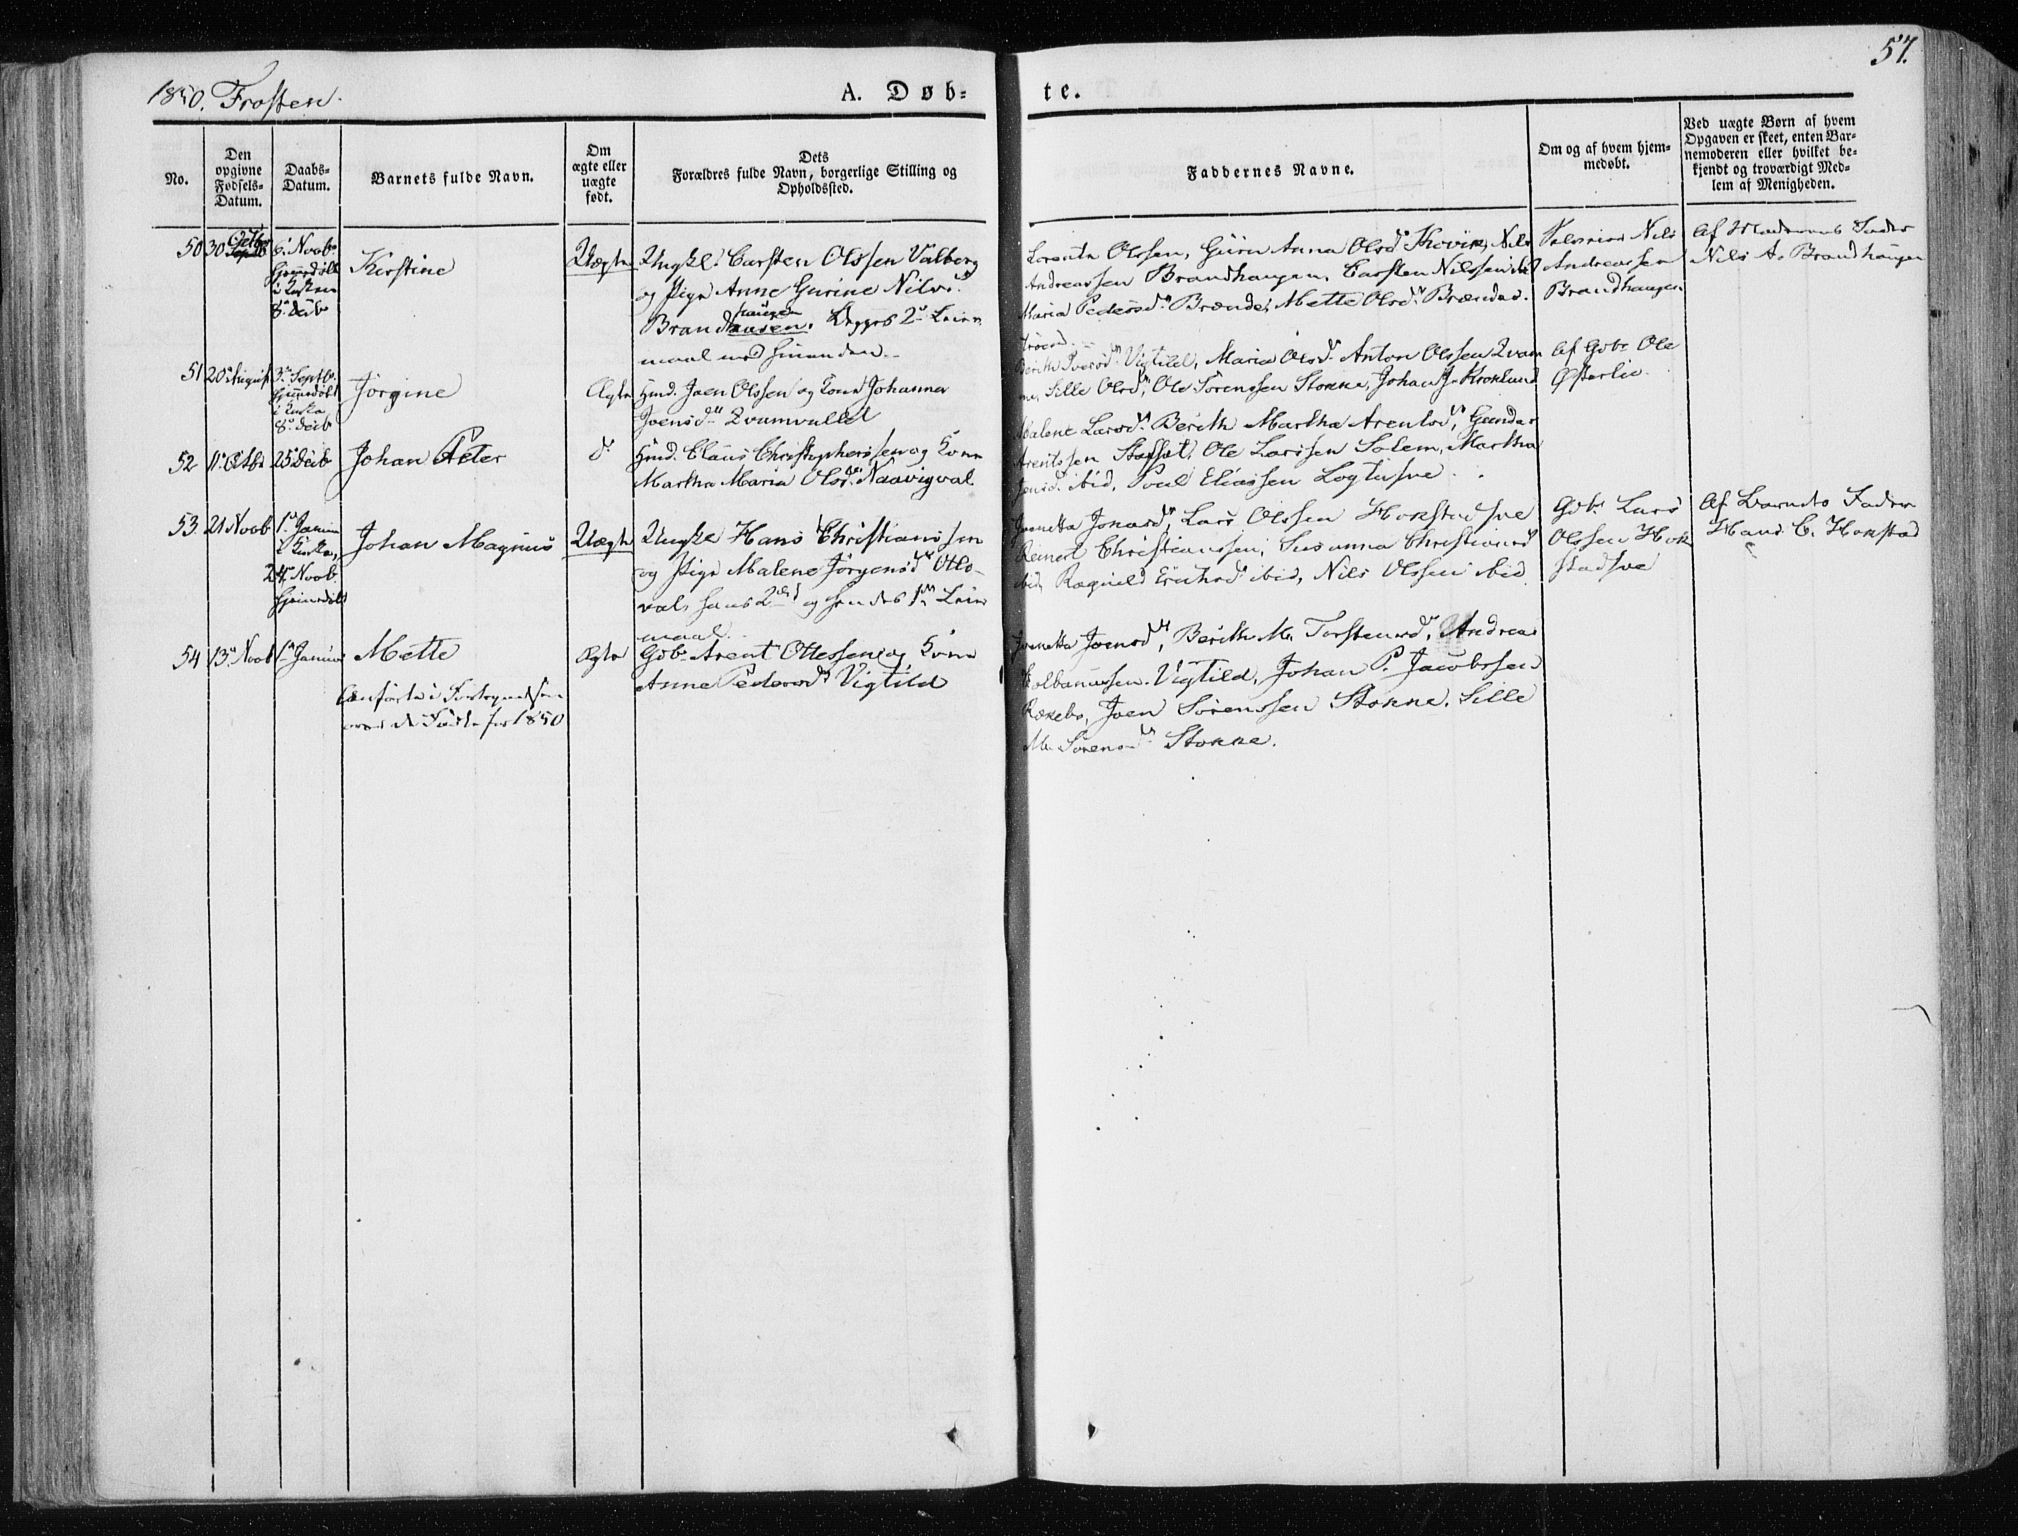 1850. Frosten.
A. Døb-
te.
57.
No.
Den
opgivne
Fødsels-
Datum.
Daabs-
Datum.
Barnets fulde Navn.
Om
ægte eller
uægte
født.
Dets
Forældres fulde Navn, borgerlige Stilling og
Opholdssted.
Faddernes Navne.
Om og af hvem hjem-
medøbt.
Ved uægte Børn af hvem
Opgaven er skeet, enten Bar-
nemoderen eller hvilket be-
kjendt og troværdigt Med-
lem af Menigheden.
50
30 Octbr
6. Novb.
Hjemdøbt
i Kirken
8. Decb
Kirstine
Uægte
Ungkl. Carsten Olssen Valberg
og Pige Anne Gurine Nilsd.
Brandhaugen. Begges 2 Leier-
maal med hinanden.
Lorentz Olssen, Guru Anna Olsd. Skovik, Nils
Andreassen Brandhaugen, Carsten Nilssen ibid
Maria Pedersd. Brænde, Mette Olsd. Brændes-
Nils
Andreassen
Brandhaugen
Af Moderens Fader
Nils A. Brandhaugen
51
20 August
3. Septb.
Hjemdøbt
i Kirken
8. Decb
Jørgine
Ægte
Huusm. Joen Olssen og Kone Johanna
Joensd. Qvamvallet
Berith Iversd. Vigtild, Maria Olsd. Anton Olssen Qvam
Sille Olsd., Ole Sørenssen Stokke, Johan J. Krokland
Af Gdbr Ole
Østerlie.
52
11 Octbr
25 Decb
Johan Peter
do
Huusm. Claus Christophersen og Kone
Martha Maria Olsd. Naavigval
Malene Larsd. Berith Martha Arentsd., Gunder
Arentssen Stafset, Ole Larssen Solem, Martha
Jensd. ibid, Poul Eliassen Logtusve.
53.
21 Novb
1. Januar
i Kirken,
24. Novb.
Hjemdøbt
Johan Magnus
Uægte
Ungkl Hans Christianssen
og Pige Malene Jørgensd. Otlo-
val, hans 2det og hendes 1ste Leier
maal.
Jonetta Jonasd., Lars Olssen Hokstadsve
Reinert Christianssen, Susanna Christiansd
ibid, Ragnild Erichsd. ibid, Nils Olssen ibid
Gdbr Lars
Olssen Hok
stadsve
Af Barnets Fader
Hans C. Hokstad
54
13. Novb
1. Januar
Mette
Ægte
Gdbr Arent Ottessen og Kone
Anne Pedersd. Vigtild
Anførte i Fortegnelsen
over de Fødte for 1850
Jonetta Joensd., Berith M. Torstensd., Andreas
Kolbanussen Vigtild, Johan P. Jacobssen
Rokebo, Joen Sørenssen Stokke, Sille
M. Sørensd. Stokke.